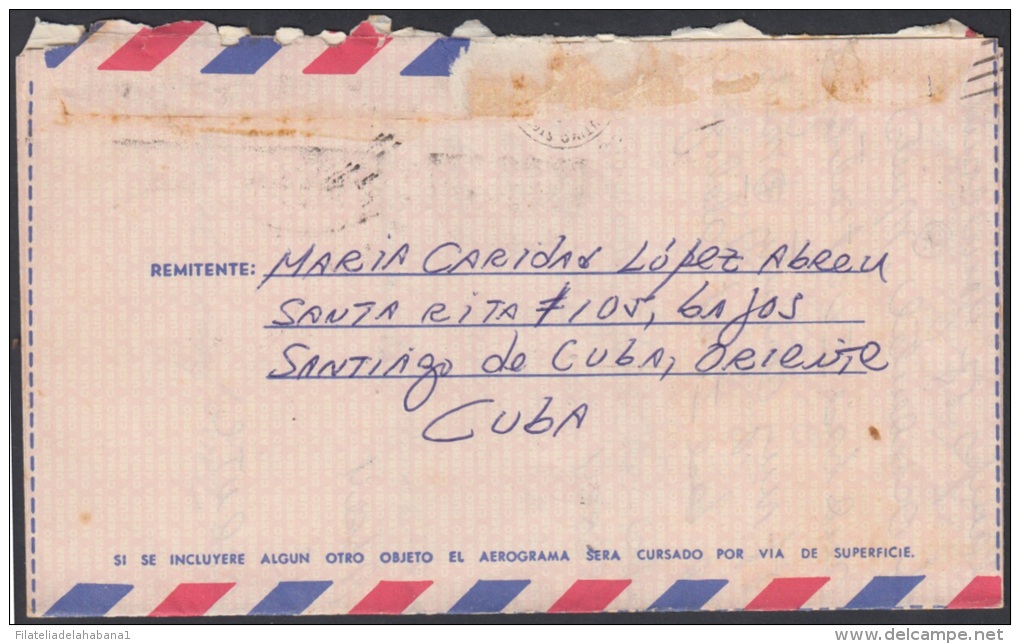 REMITENTE: MARIA CARIDAD LÓPEZ ABREU
SANTA RITA #105, BAJOS
SANTIAGO de CUBA, ORIENTE
CUBA
SI SE INCLUYERE ALGUN OTRO OBJETO EL AEROGRAMA SERA CURSADO POR VIA DE SUPERFICIE.
Filateliadelahabana1
delcampe.net